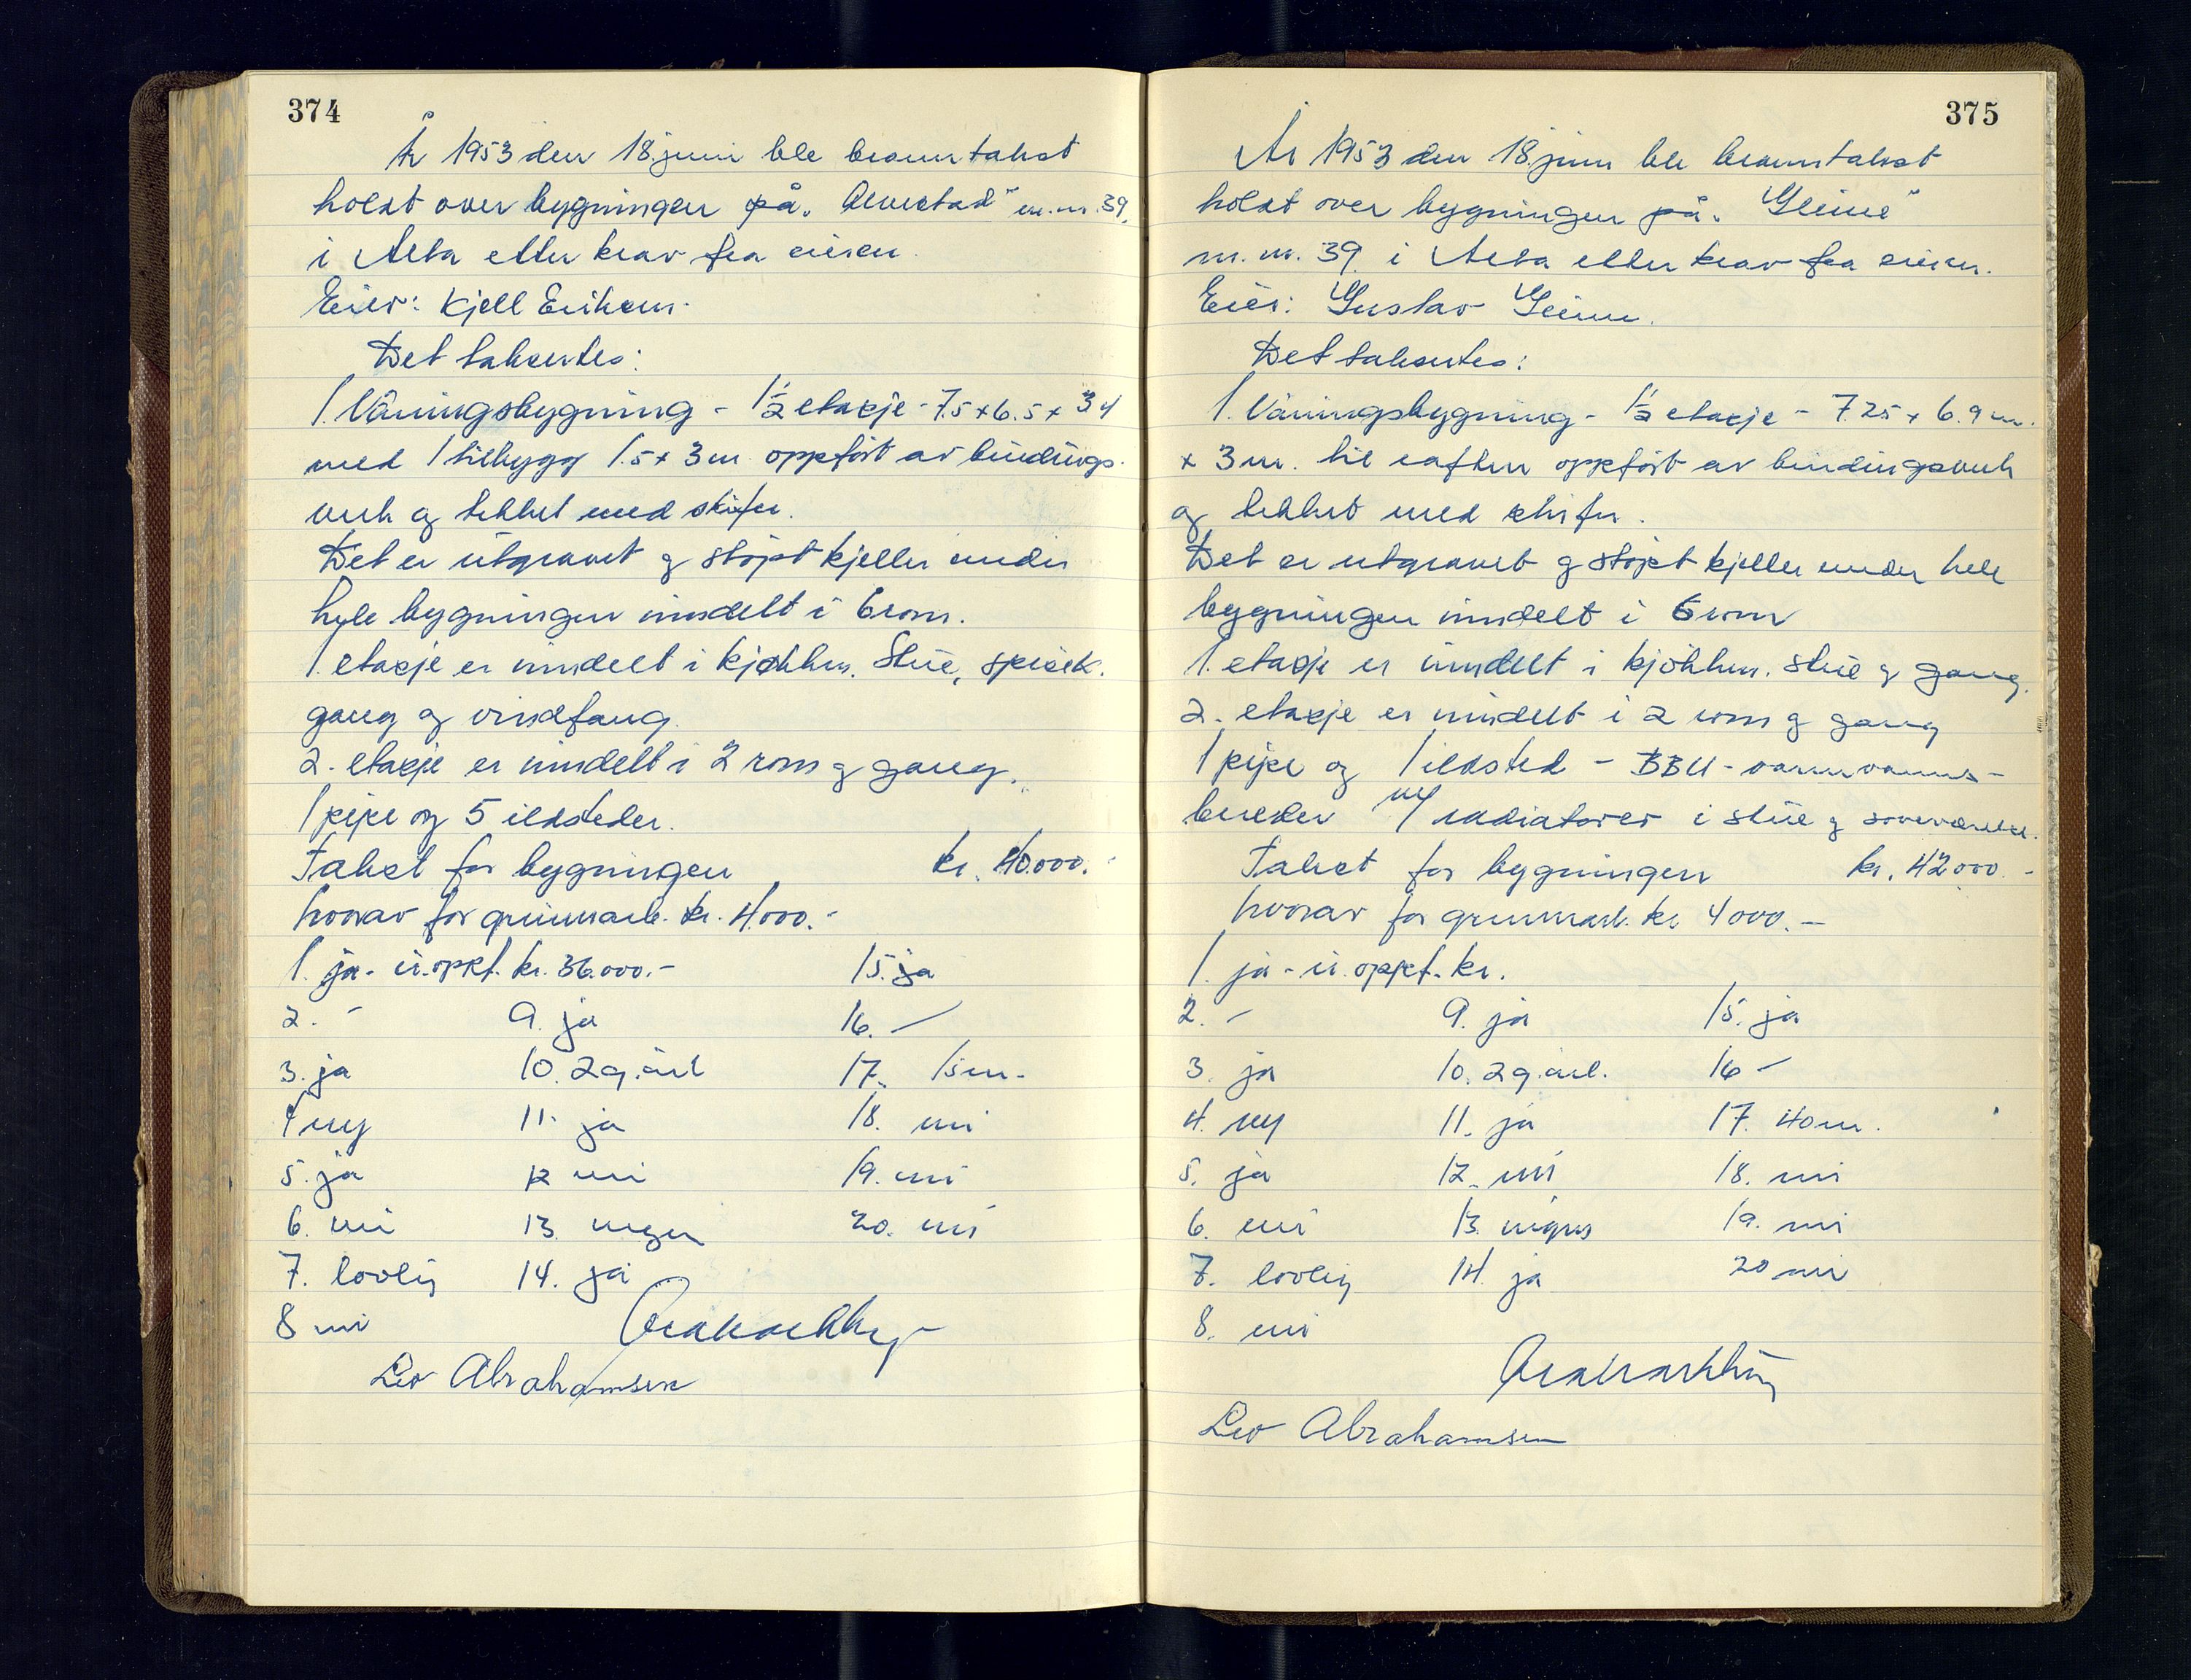 374
År 1953 den 18. juni ble branntakst
holdt over bygningen på "Alvestad" m.nr. 39.
i Alta etter krav fra eieren.
Eier: Kjell Eriksen.
Det taksertes:
1. Våningsbygning - 1½ etasje - 7.5 x 6.5 x 3.4
med 1 tilbygg 1.5 x 3 m oppført av bindings-
verk og tekket med skifer.
Det er utgravet og støpt kjeller under
hele bygningen inndelt i 6 rom.
1. etasje er inndelt i kjøkken. Stue, spisek.
gang og vindfang.
2. etasje er inndelt i 2 rom og gang.
1 pipe og 5 ildsteder.
Takst for bygningen kr. 40.000.-
hvorav for grunnarb. kr. 4.000.-
1. ja - i.oppf. kr. 36.000.- 15. ja
2. - 9. ja 16. -
3. ja 10. 2 g. årl 17. 15 m.
4 ny 11. ja 18. nei
5. ja 12 nei 19. nei
6. nei 13. ingen 20. nei
7. lovlig 14. ja
8 nei
Leo Abrahamsen
375
År 1953 den 18. juni ble branntakst
holdt over bygningen på "Heime"
m. nr. 39 i Alta etter krav fra eieren.
Eier: Gustav Heime.
Det taksertes:
1. Våningsbygning - 1½ etasje - 7.25 x 6.9 m.
x 3 m. til raften oppført av bindingsverk
og tekket med skifer.
Det er utgravet og støpt kjeller under hele
bygningen inndelt i 6 rom
1. etasje er inndelt i kjøkken. stue og gang.
2. etasje er inndelt i 2 rom og gang
1 pipe og 1 ildsted - BBU - varmvanns-
bereder m/ radiatorer i stue og soveværelse.
Takst for bygningen kr. 42000.-
hvorav for grunnarb. kr 4000.-
1. ja - i. oppf. kr.
2. - 9. ja 15. ja
3. ja 10. 2 g. årl. 16 -
4. ny 11. ja 17. 40 m.
5. ja 12. nei 18. nei
6. nei 13. ingen 19. nei
7. lovlig 14. ja 20 nei
8. nei
Leo Abrahamsen